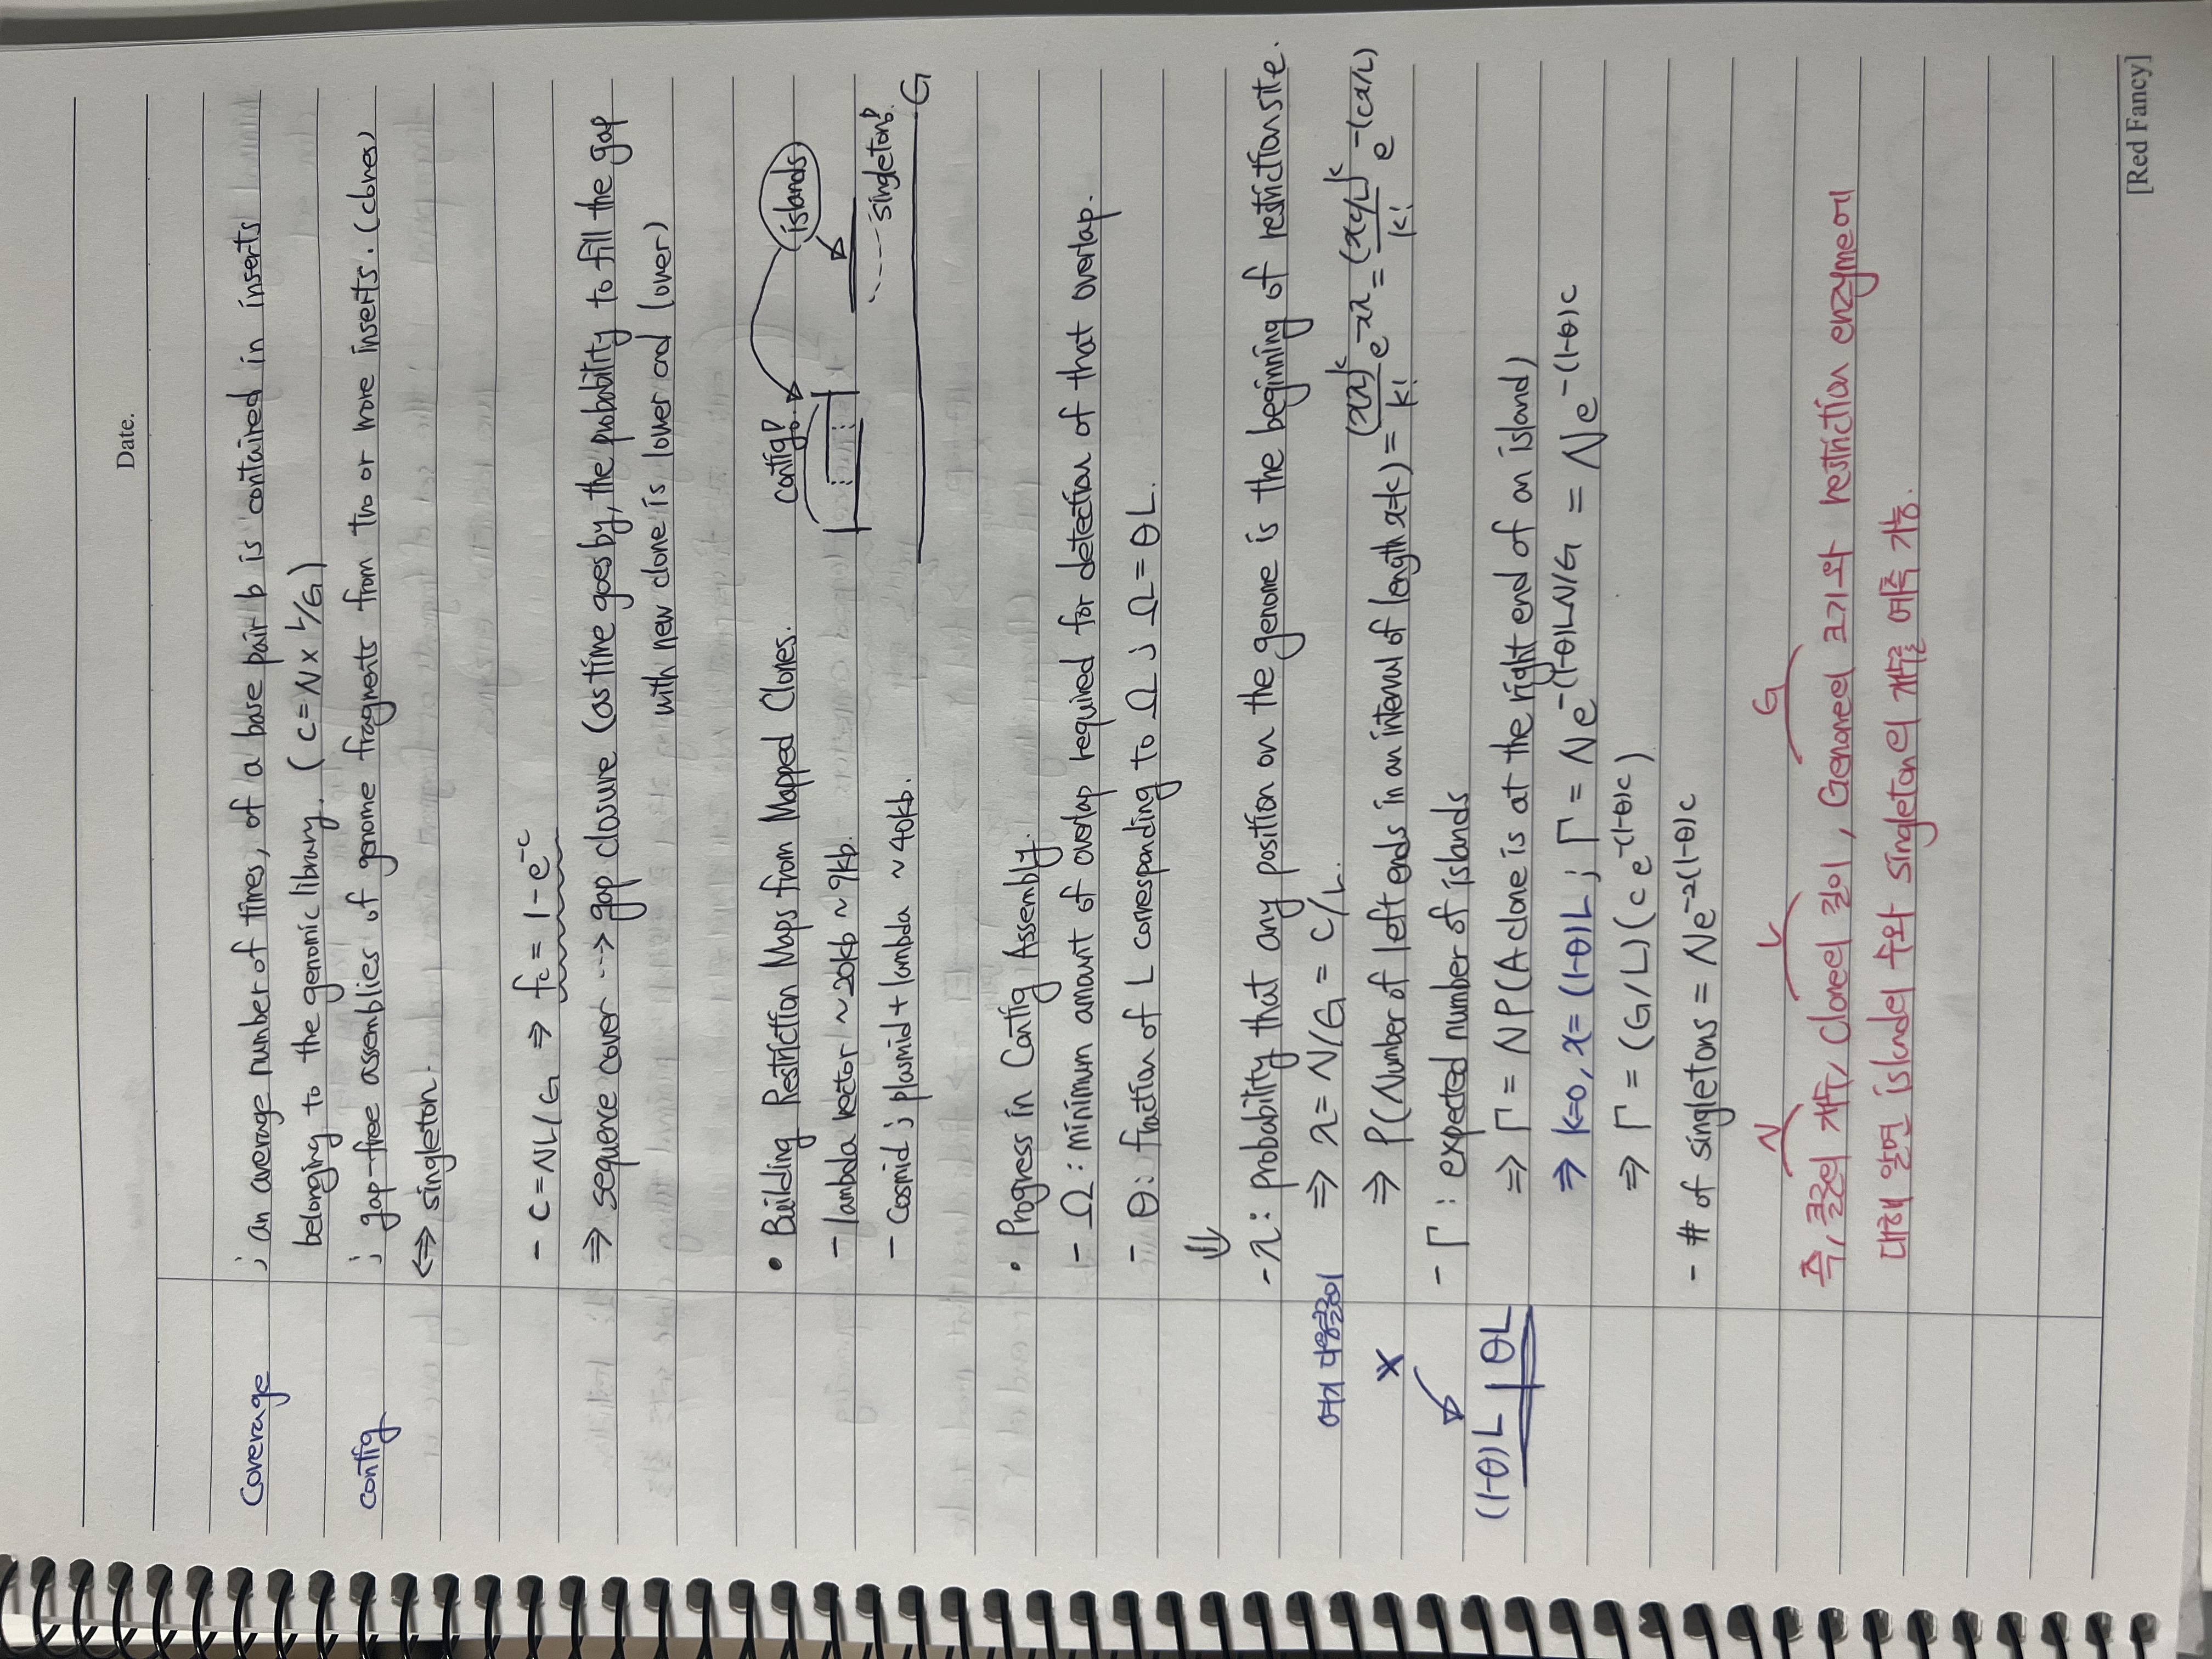 Date.
Coverage ; an average number of times, of a base pair b is contained in inserts
belonging to the genomic library. ( C = N × L/G )
contig ; gap-free assemblies of genome fragments from two or more inserts. (clones)
⇔ singleton.
- C = NL/G ⇒ fc = 1 - e^-c
⇒ sequence cover ⇢ gap closure (as time goes by, the probability to fill the gap
with new clone is lower and lower)
• Building Restriction Maps from Mapped Clones.
contig? islands
- lambda vector ~ 20kb ~ 9kb.
- Cosmid ; plasmid + lambda ~ 40kb.
singleton?
G
• Progress in Contig Assembly.
- Ω : minimum amount of overlap required for detection of that overlap.
- θ : fraction of L corresponding to Ω ; Ω = θL.
⇓
- λ : probability that any position on the genome is the beginning of restriction site.
⇒ λ = N/G = C/L.
⇒ P(Number of left ends in an interval of length x = k) = (xλ)^k/k! e^-xλ = (xc/L)^k/k! e^-(cx/L)
- Γ : expected number of islands
(1-θ)L | θL
⇒ Γ = NP(A clone is at the right end of an island)
⇒ k=0, x=(1-θ)L ; Γ = Ne^-(1-θ)LN/G = Ne^-(1-θ)c
⇒ Γ = (G/L)(ce^-(1-θ)c)
- # of singletons = Ne^-2(1-θ)c
N L G
즉, 클론의 개수, Clone의 길이, Genome의 크기와 restriction enzyme에
대해 알면 island의 수와 singleton의 개수를 예측 가능.
[Red Fancy]